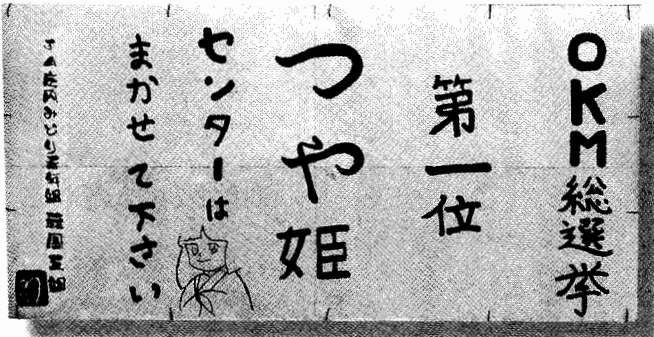 OKM総選挙
第一位
つや姫
センターは
まかせて下さい
JA庄内みどり